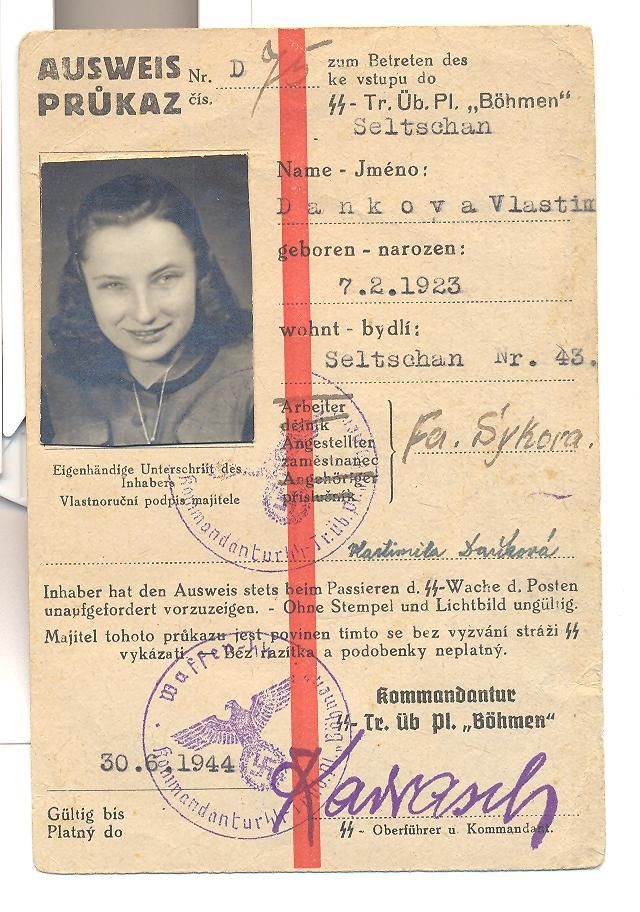 AUSWEIS Nr. D 95
PRŮKAZ čís.
zum Betreten des
ke vstupu do
SS - Tr. Üb. Pl. „Böhmen“
Seltschan
Name - Jméno:
Dankova Vlastim
geboren - narozen:
7.2.1923
wohnt - bydlí:
Seltschan Nr. 43.
Arbeiter
dělník
Angestellter
zaměstnanec
Angehöriger
příslušník
Fa. Sýkora.
Eigenhändige Unterschrift des
Inhabers
Vlastnoruční podpis majitele
Kommandantur SS-Tr. Üb. Pl.
Vlastimila Daňková
Inhaber hat den Ausweis stets beim Passieren d. SS-Wache d. Posten
unaufgefordert vorzuzeigen. - Ohne Stempel und Lichtbild ungültig.
Majitel tohoto průkazu jest povinen tímto se bez vyzvání stráži SS
vykázati. - Bez razítka a podobenky neplatný.
Waffen-SS
Kommandantur
Kommandantur
SS- Tr. Üb Pl. „Böhmen“
30.6.1944
Karrasch
Gültig bis
Platný do
SS - Oberführer u. Kommandant.